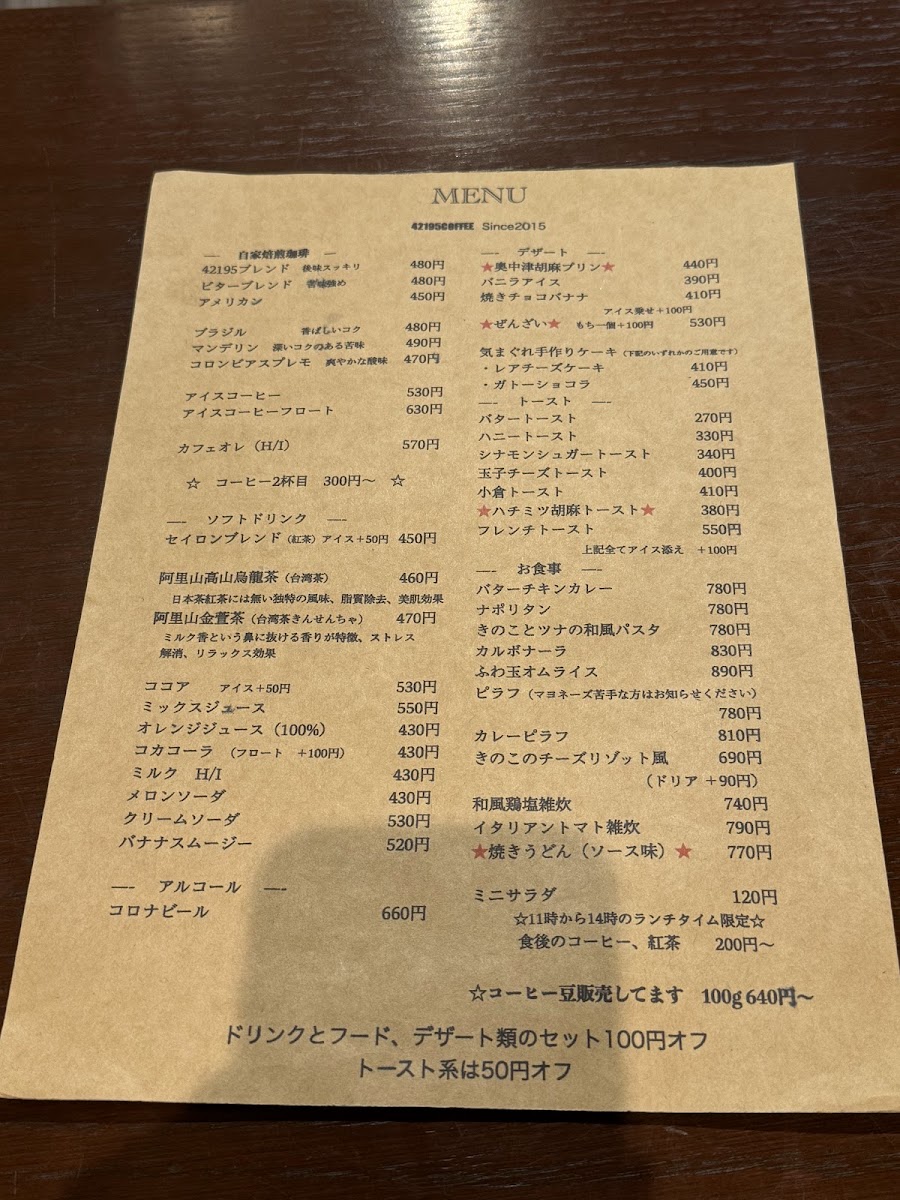 MENU
42195COFFEE Since2015
―- 自家焙煎珈琲 ―
42195ブレンド 後味スッキリ 480円
ビターブレンド 苦味強め 480円
アメリカン 450円
ブラジル 香ばしいコク 480円
マンデリン 深いコクのある苦味 490円
コロンビアスプレモ 爽やかな酸味 470円
アイスコーヒー 530円
アイスコーヒーフロート 630円
カフェオレ（H/I） 570円
☆ コーヒー2杯目 300円～ ☆
―- ソフトドリンク ―-
セイロンブレンド（紅茶）アイス+50円 450円
阿里山高山烏龍茶（台湾茶） 460円
日本茶紅茶には無い独特の風味、脂質除去、美肌効果
阿里山金萱茶（台湾茶きんせんちゃ） 470円
ミルク香という鼻に抜ける香りが特徴、ストレス
解消、リラックス効果
ココア アイス+50円 530円
ミックスジュース 550円
オレンジジュース（100%） 430円
コカコーラ （フロート +100円） 430円
ミルク H/I 430円
メロンソーダ 430円
クリームソーダ 530円
バナナスムージー 520円
―- アルコール ―-
コロナビール 660円
―- デザート ―-
★奥中津胡麻プリン★ 440円
バニラアイス 390円
焼きチョコバナナ 410円
アイス乗せ+100円
★ぜんざい★ もち一個+100円 530円
気まぐれ手作りケーキ（下記のいずれかのご用意です）
・レアチーズケーキ 410円
・ガトーショコラ 450円
―- トースト ―-
バタートースト 270円
ハニートースト 330円
シナモンシュガートースト 340円
玉子チーズトースト 400円
小倉トースト 410円
★ハチミツ胡麻トースト★ 380円
フレンチトースト 550円
上記全てアイス添え +100円
―- お食事 ―-
バターチキンカレー 780円
ナポリタン 780円
きのことツナの和風パスタ 780円
カルボナーラ 830円
ふわ玉オムライス 890円
ピラフ（マヨネーズ苦手な方はお知らせください）
780円
カレーピラフ 810円
きのこのチーズリゾット風 690円
（ドリア +90円）
和風鶏塩雑炊 740円
イタリアントマト雑炊 790円
★焼きうどん（ソース味）★ 770円
ミニサラダ 120円
☆11時から14時のランチタイム限定☆
食後のコーヒー、紅茶 200円～
☆コーヒー豆販売してます 100g 640円～
ドリンクとフード、デザート類のセット100円オフ
トースト系は50円オフ